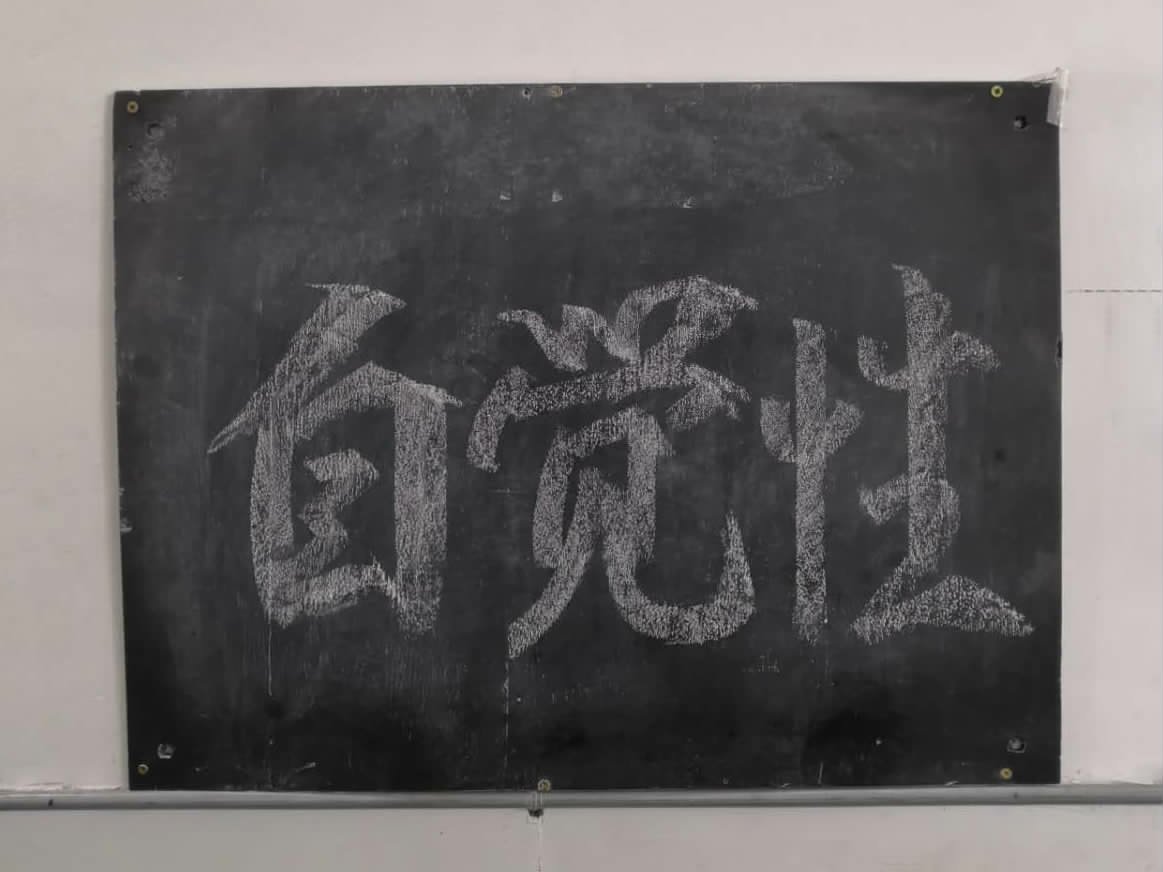 自觉性